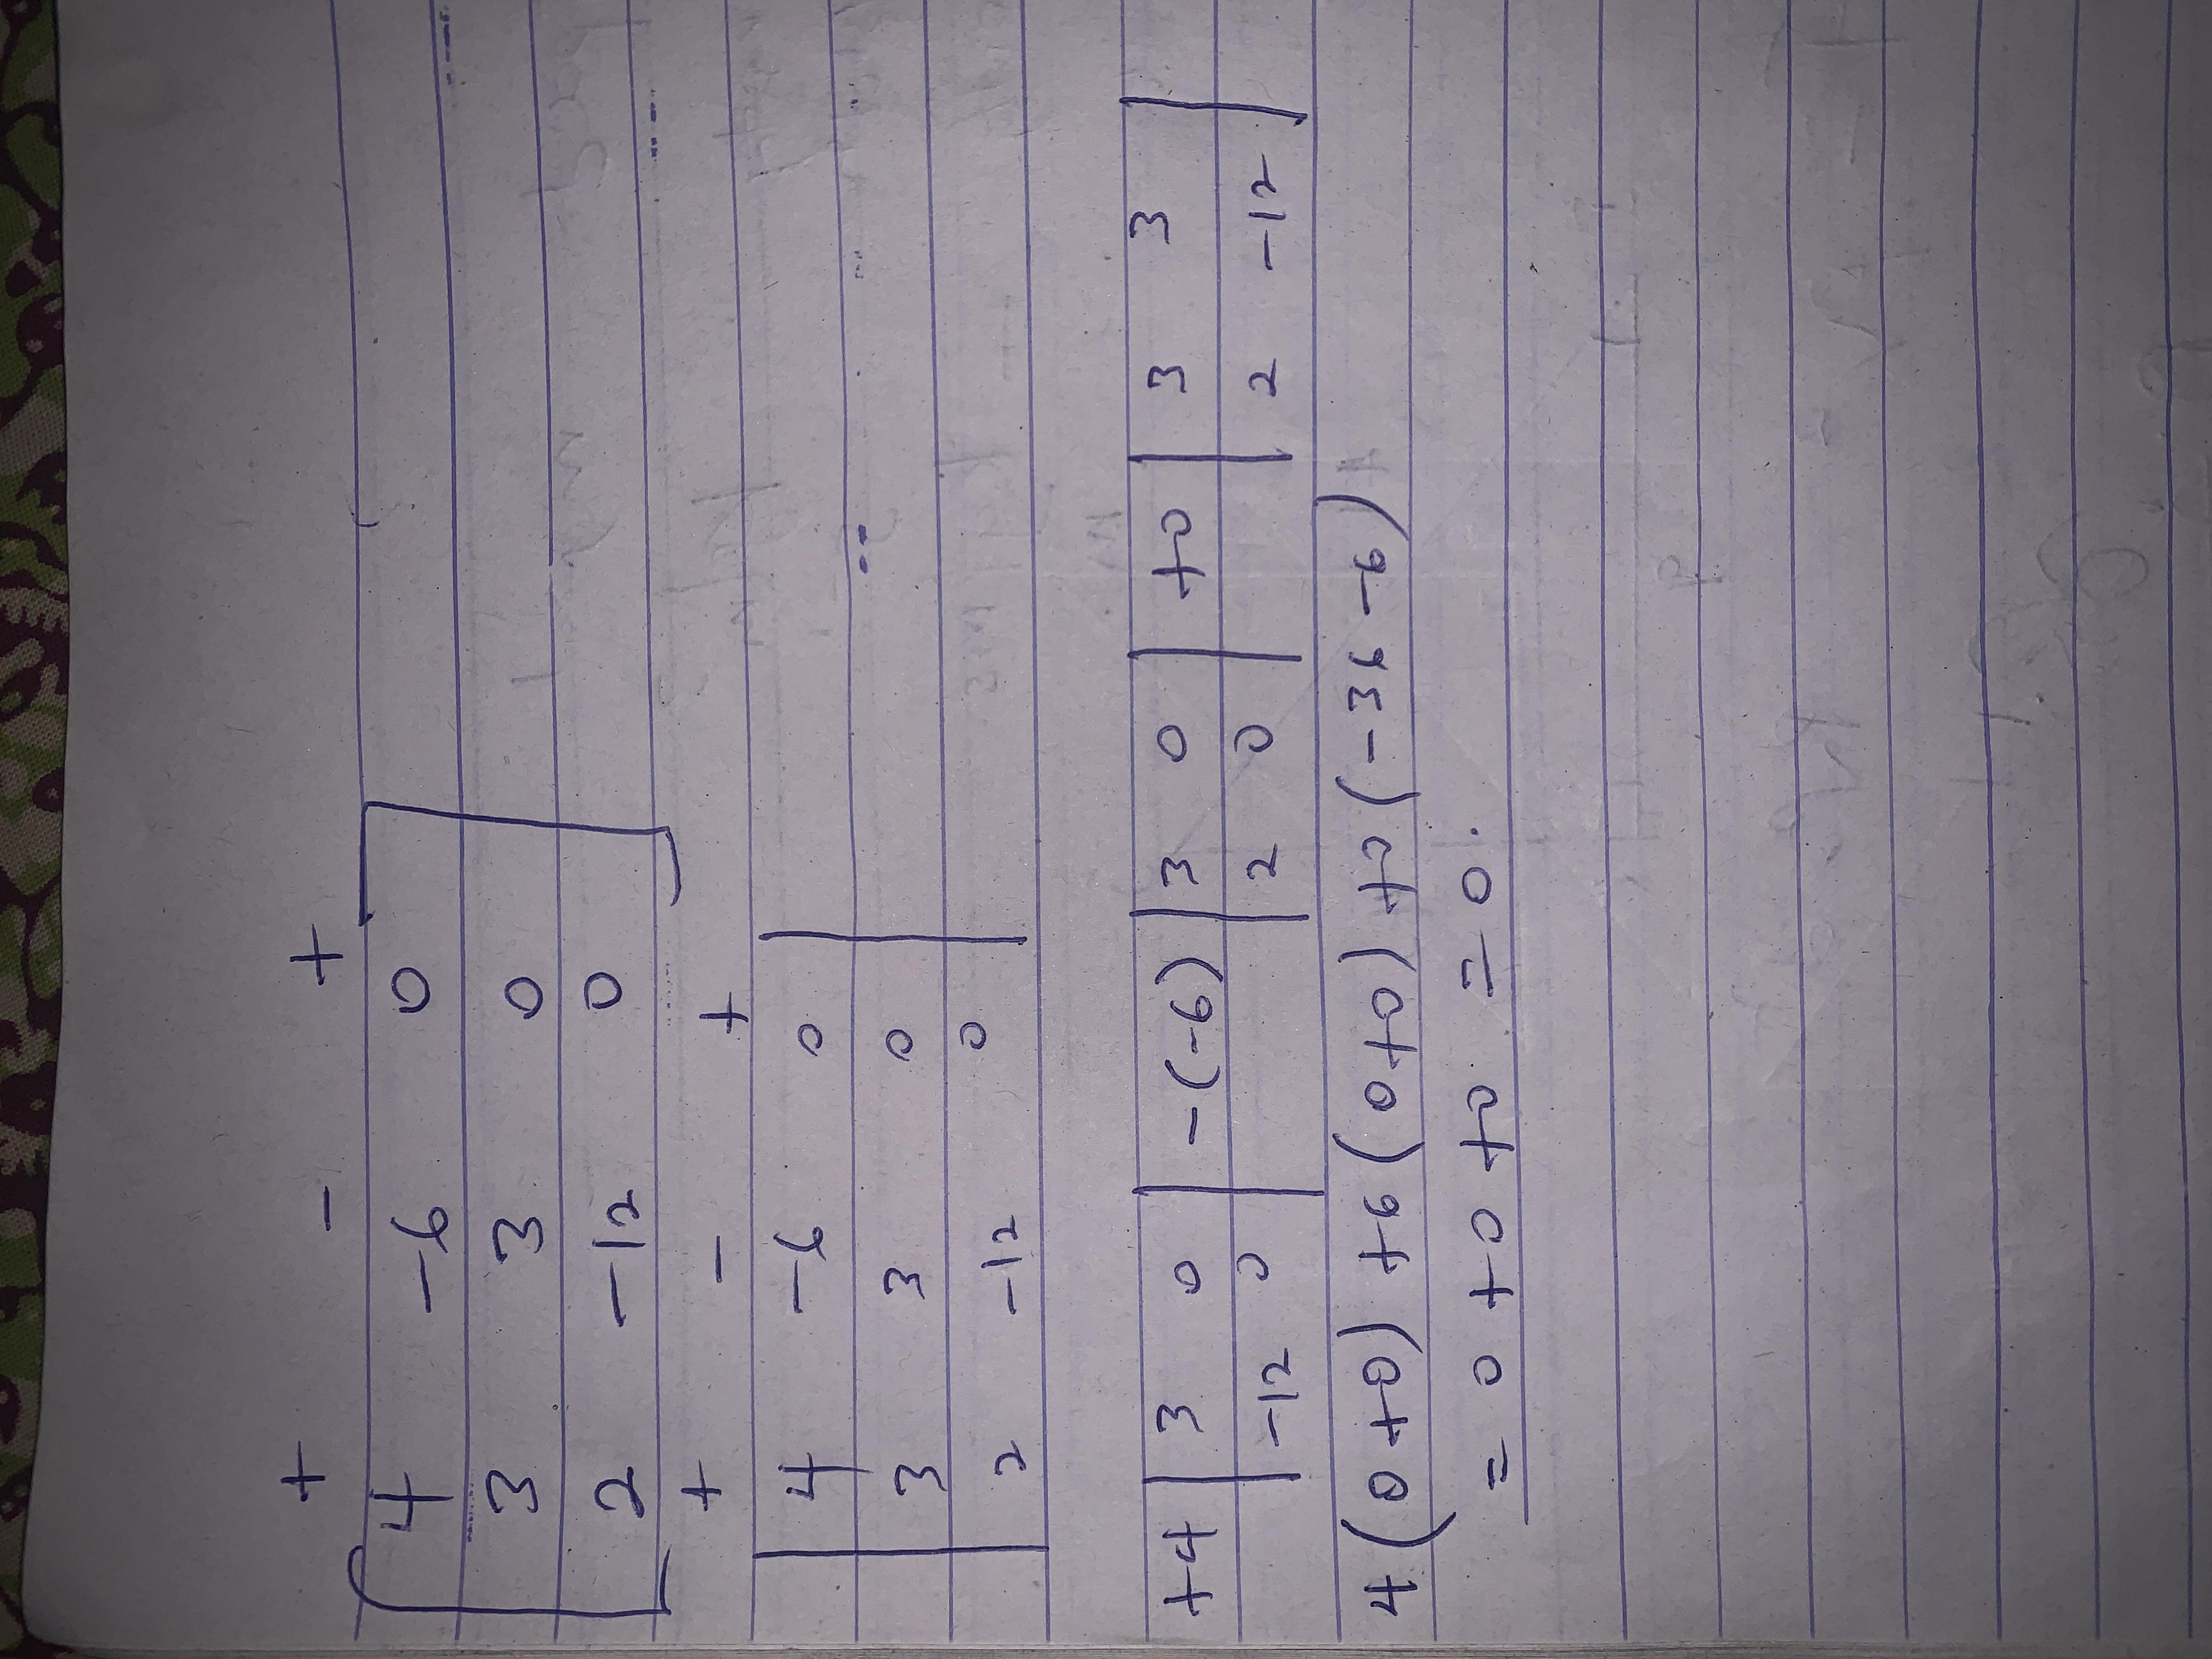 + - +
[ 4 -6 0 ]
3 3 0
2 -12 0
+ - +
| 4 -6 0 |
3 3 0
2 -12 0
+4 | 3 0 | -(-6) | 3 0 | +0 | 3 3 |
-12 0 2 0 2 -12
4(0+0) +6(0+0) +0(-36 -6)
= 0 + 0 + 0 = 0.